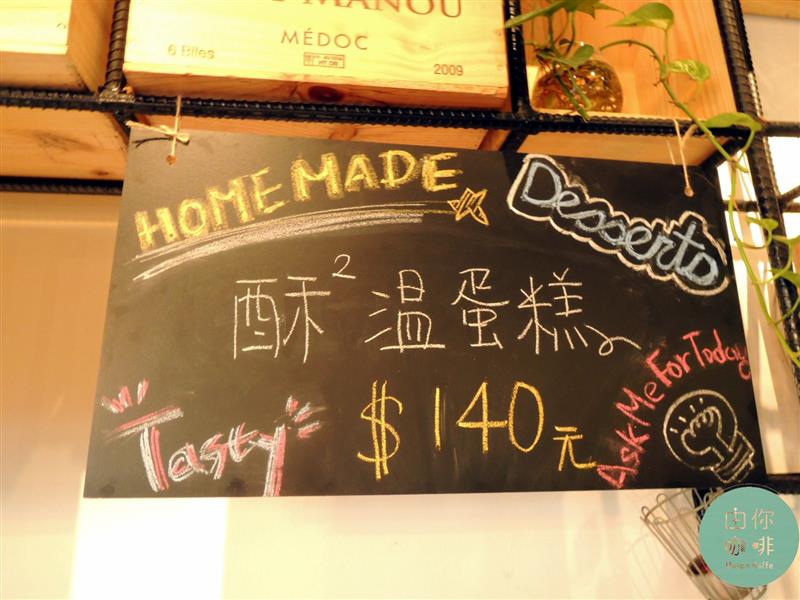 MANOU
MÉDOC
6 Btles
2009
HOME MADE
Desserts
酥² 溫蛋糕
Tasty
$ 140元
Ask Me For Today
由你
咖啡